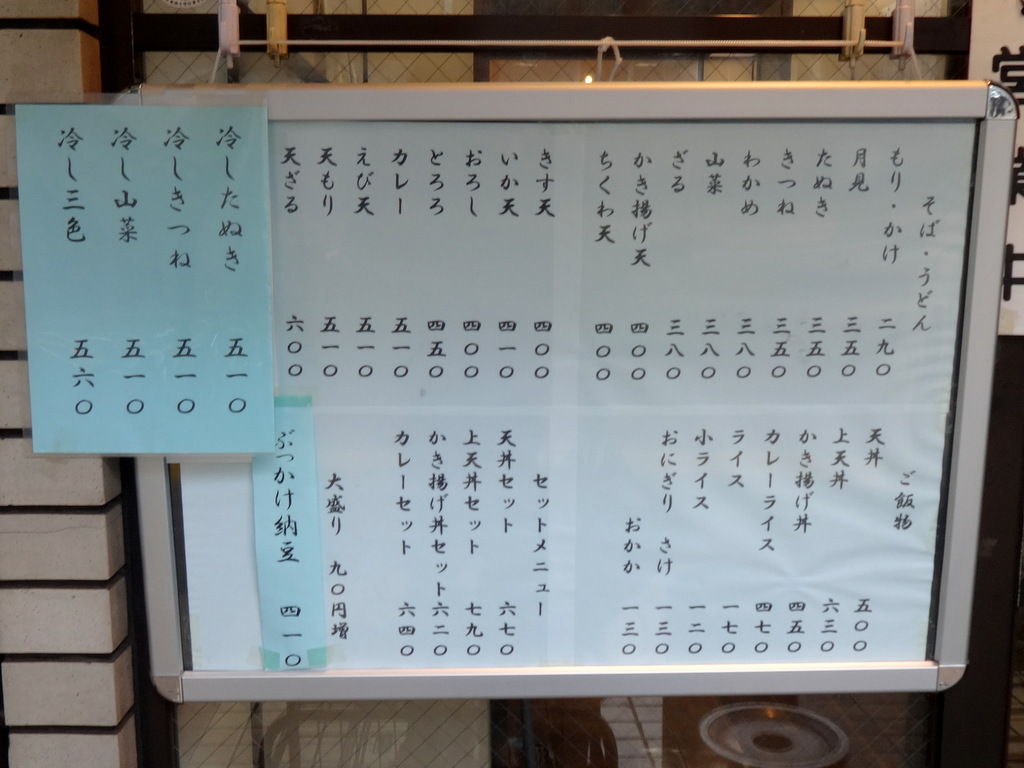 そば・うどん
もり・かけ 二九〇
月見 三五〇
たぬき 三五〇
きつね 三五〇
わかめ 三八〇
山菜 三八〇
ざる 三八〇
かき揚げ天 四〇〇
ちくわ天 四〇〇
きす天 四〇〇
いか天 四一〇
おろし 四〇〇
とろろ 四五〇
カレー 五一〇
えび天 五一〇
天もり 五一〇
天ざる 六〇〇
冷したぬき 五一〇
冷しきつね 五一〇
冷し山菜 五一〇
冷し三色 五六〇
ご飯物
天丼 五〇〇
上天丼 六三〇
かき揚げ丼 四五〇
カレーライス 四七〇
ライス 一七〇
小ライス 一二〇
おにぎり さけ 一三〇
おかか 一三〇
セットメニュー
天丼セット 六七〇
上天丼セット 七九〇
かき揚げ丼セット 六二〇
カレーセット 六四〇
大盛り 九〇円増
ぶっかけ納豆 四一〇
営業中